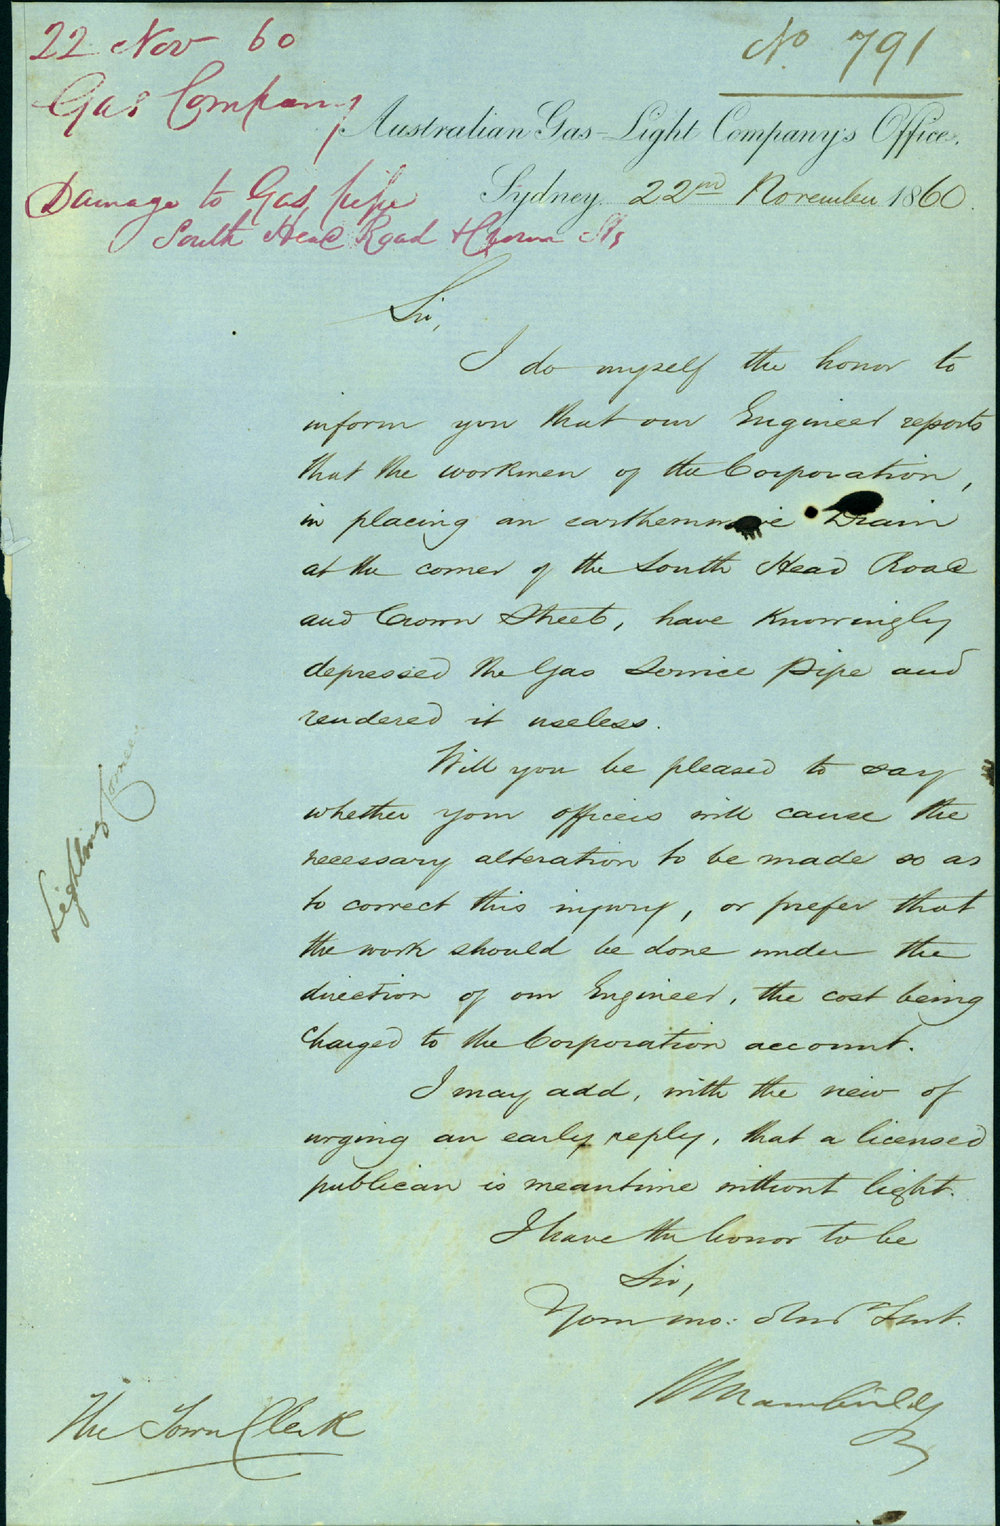 22 Nov 60
No 791
Gas Company
Australian Gas-Light Company's Office,
Damage to Gas pipe
Sydney 22nd November 1860.
South Head Road & Crown Sts
Sir,
I do myself the honor to
inform you that our Engineer reports
that the workmen of the Corporation,
in placing an earthenware Drain
at the corner of the South Head Road
and Crown Street, have Knowingly
depressed the Gas Service Pipe and
rendered it useless.
Will you be pleased to say
whether your officers will cause the
necessary alteration to be made so as
to correct this injury, or prefer that
the work should be done under the
direction of our Engineer, the cost being
charged to the Corporation account.
I may add, with the view of
urging an early reply, that a licensed
publican is meantime without light.
I have the honor to be
Sir,
Your mo: Obed Servt.
The Town Clerk
Lighting